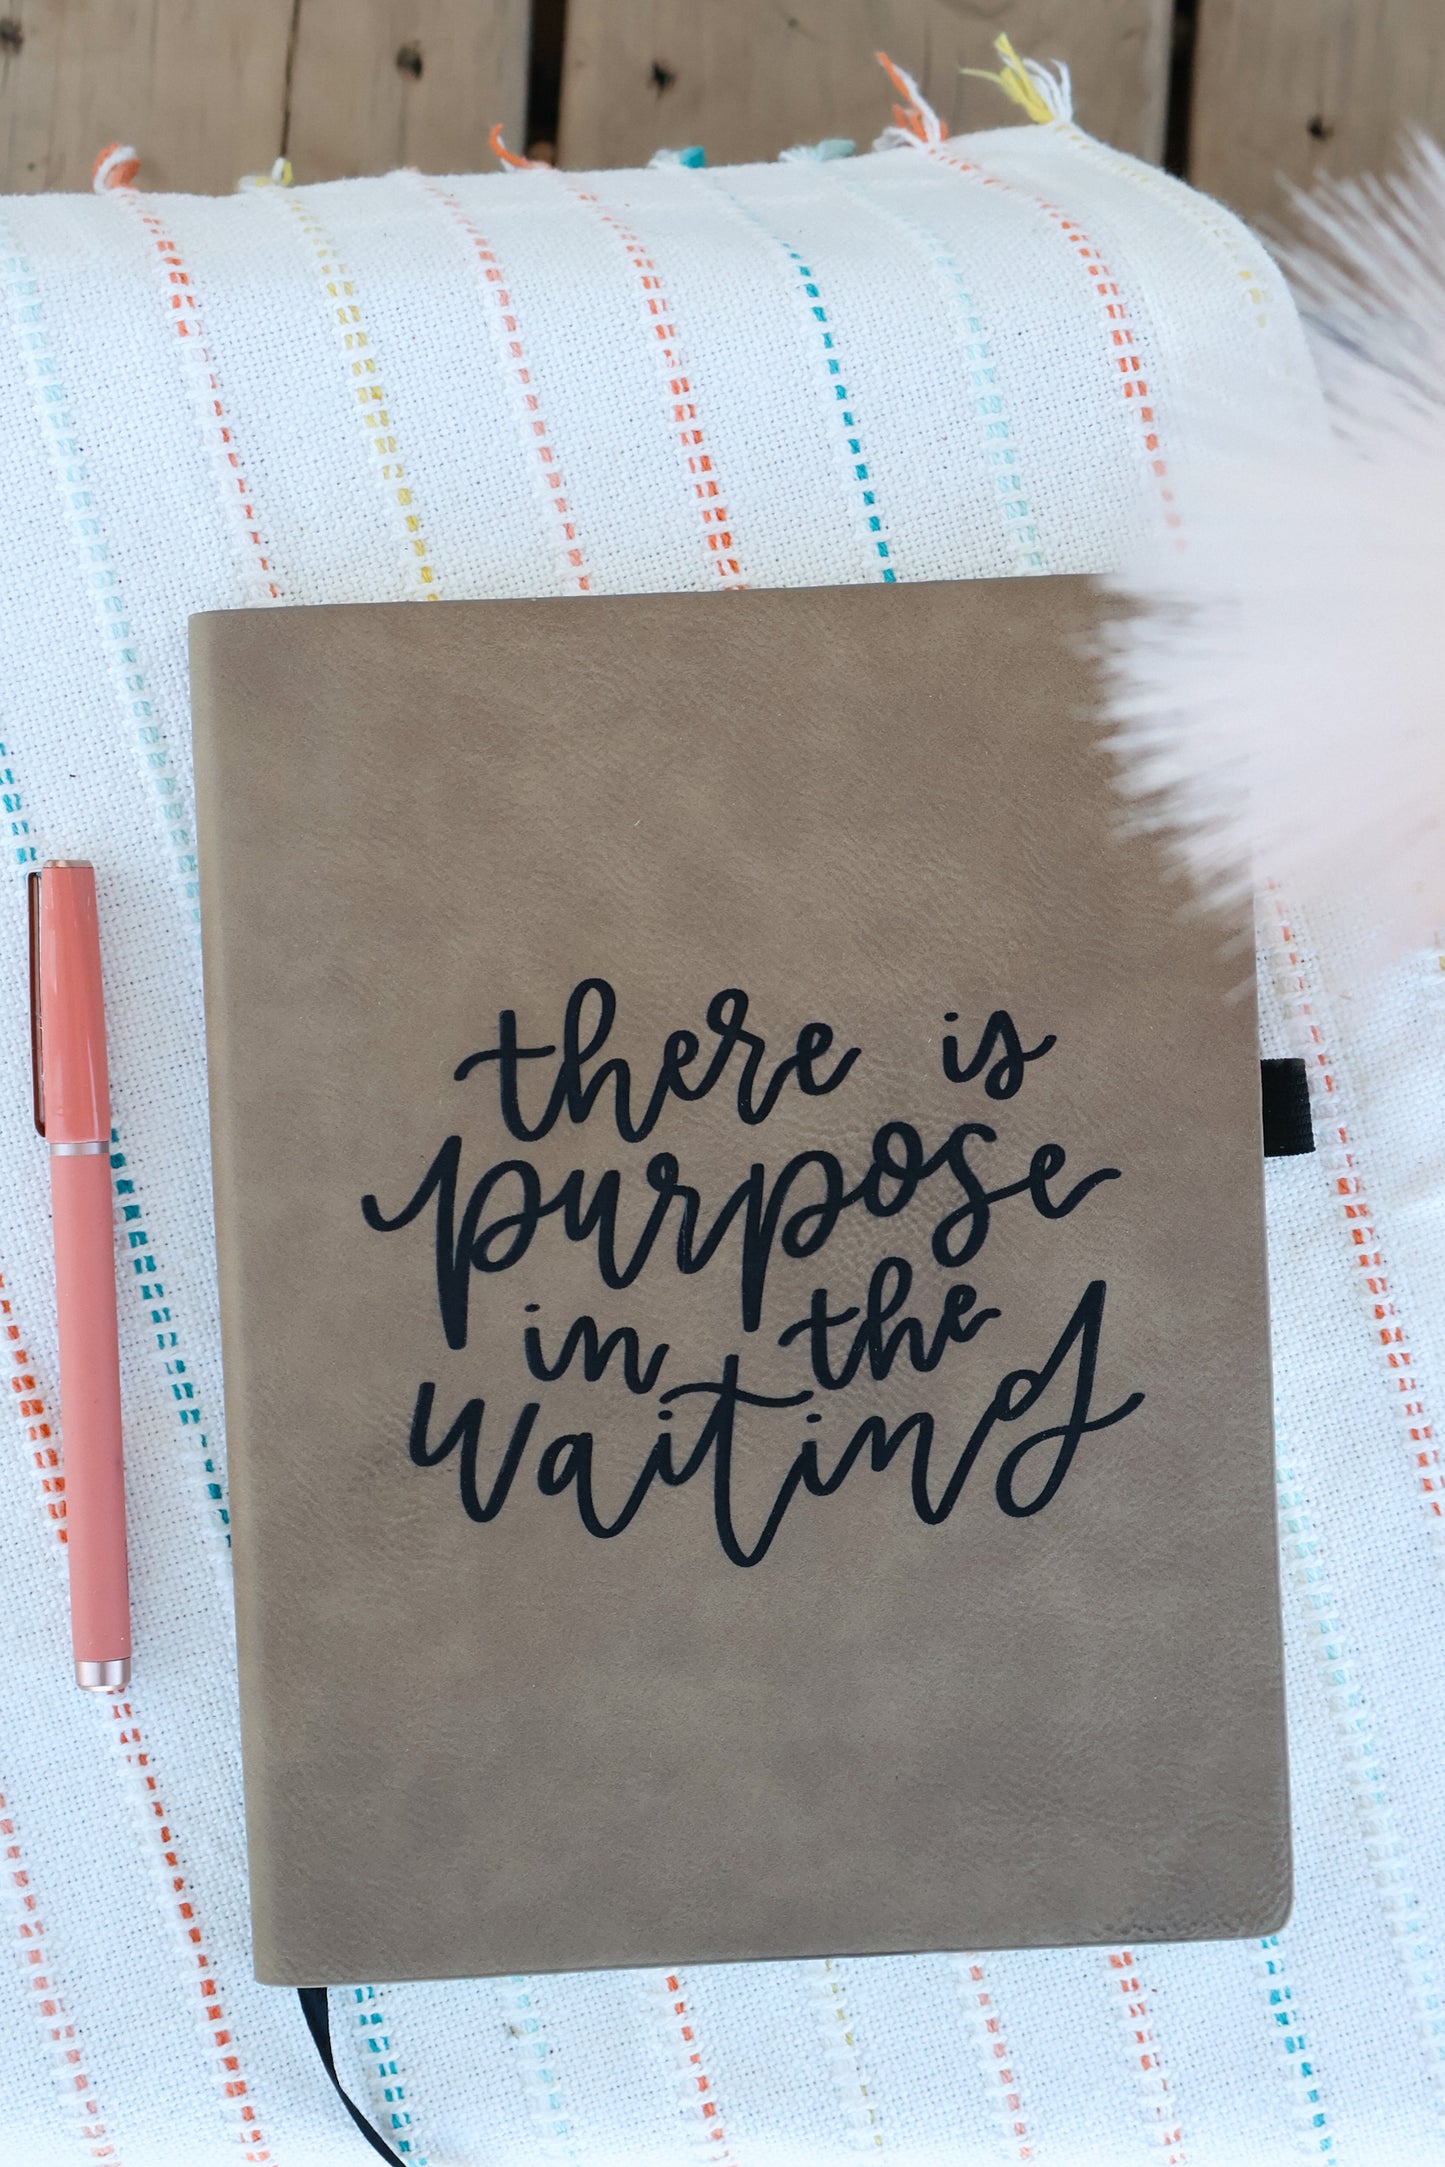 there is
purpose
in the
waiting